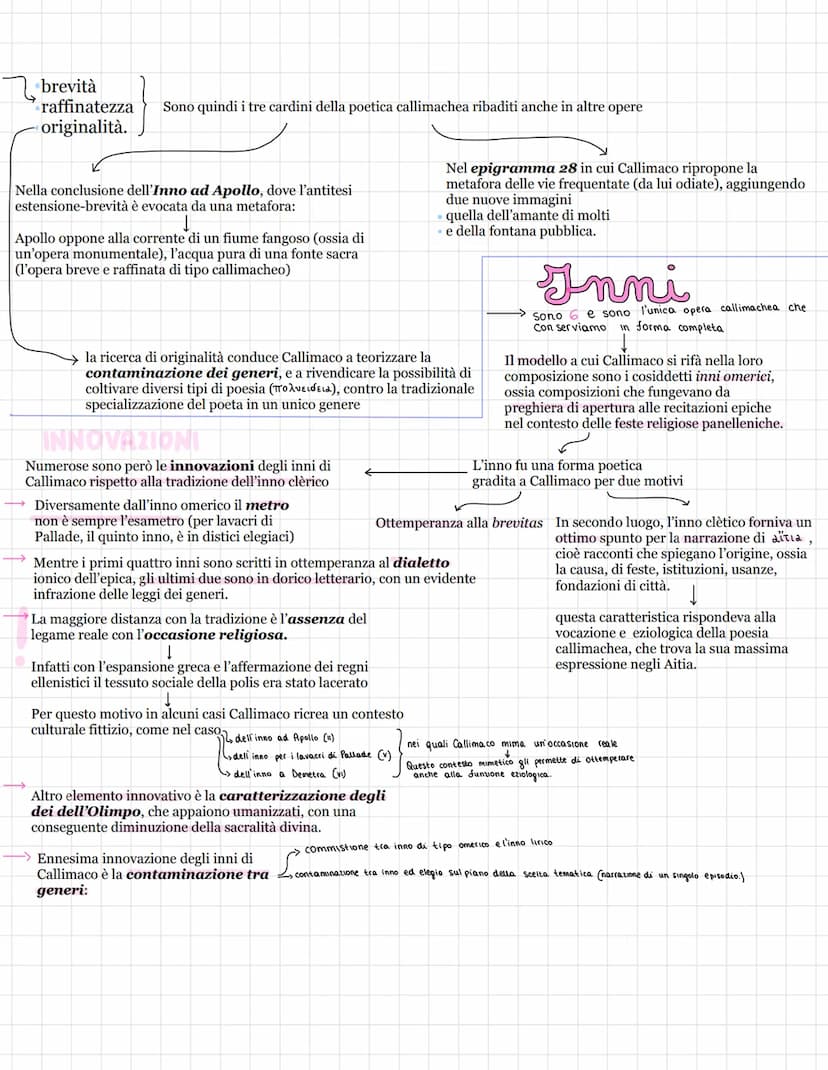 brevità
raffinatezza
originalità.
Sono quindi i tre cardini della poetica callimachea ribaditi anche in altre opere
Nella conclusione dell'Inno ad Apollo, dove l'antitesi
estensione-brevità è evocata da una metafora:
Apollo oppone alla corrente di un fiume fangoso (ossia di
un'opera monumentale), l'acqua pura di una fonte sacra
(l'opera breve e raffinata di tipo callimacheo)
Nel epigramma 28 in cui Callimaco ripropone la
metafora delle vie frequentate (da lui odiate), aggiungendo
due nuove immagini
quella dell'amante di molti
e della fontana pubblica.
la ricerca di originalità conduce Callimaco a teorizzare la
contaminazione dei generi, e a rivendicare la possibilità di
coltivare diversi tipi di poesia (πολυειδεια), contro la tradizionale
specializzazione del poeta in un unico genere
Inni
sono 6 e sono l'unica opera callimachea che
conserviamo in forma completa
Il modello a cui Callimaco si rifà nella loro
composizione sono i cosiddetti inni omerici,
ossia composizioni che fungevano da
preghiera di apertura alle recitazioni epiche
nel contesto delle feste religiose panelleniche.
L'inno fu una forma poetica
gradita a Callimaco per due motivi
Ottemperanza alla brevitas
In secondo luogo, l'inno clètico forniva un
ottimo spunto per la narrazione di αἴτια ,
cioè racconti che spiegano l'origine, ossia
la causa, di feste, istituzioni, usanze,
fondazioni di città.
questa caratteristica rispondeva alla
vocazione e eziologica della poesia
callimachea, che trova la sua massima
espressione negli Aitia.
INNOVAZIONI
Numerose sono però le innovazioni degli inni di
Callimaco rispetto alla tradizione dell'inno clèrico
Diversamente dall'inno omerico il metro
non è sempre l'esametro (per lavacri di
Pallade, il quinto inno, è in distici elegiaci)
Mentre i primi quattro inni sono scritti in ottemperanza al dialetto
ionico dell'epica, gli ultimi due sono in dorico letterario, con un evidente
infrazione delle leggi dei generi.
!
La maggiore distanza con la tradizione è l'assenza del
legame reale con l'occasione religiosa.
Infatti con l'espansione greca e l'affermazione dei regni
ellenistici il tessuto sociale della polis era stato lacerato
Per questo motivo in alcuni casi Callimaco ricrea un contesto
culturale fittizio, come nel caso
dell'inno ad Apollo (II)
dell'inno per i lavacri di Pallade (V)
dell'inno a Demetra (VI)
nei quali Callimaco mima un'occasione reale
Questo contesto mimetico gli permette di ottemperare
anche alla funzione eziologica.
Altro elemento innovativo è la caratterizzazione degli
dei dell'Olimpo, che appaiono umanizzati, con una
conseguente diminuzione della sacralità divina.
Ennesima innovazione degli inni di
Callimaco è la contaminazione tra
generi:
commistione tra inno di tipo omerico e l'inno lirico
contaminazione tra inno ed elegia sul piano della scelta tematica (narrazione di un singolo episodio.)